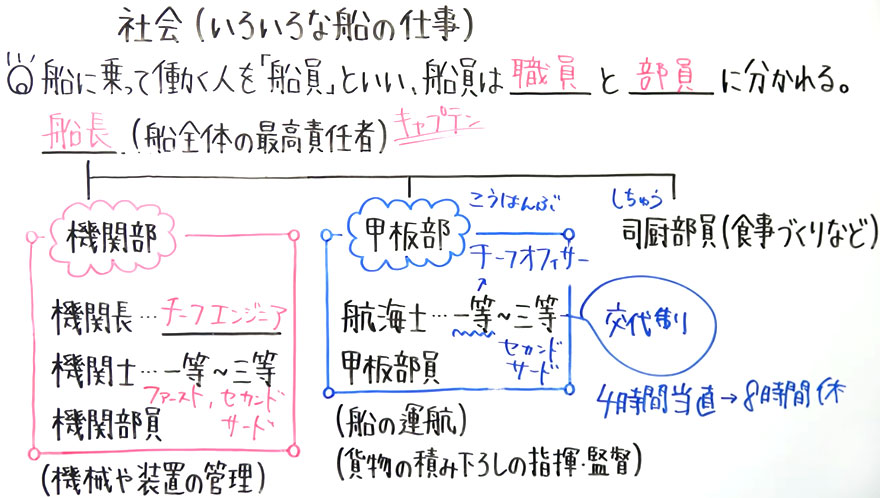 社会(いろいろな船の仕事)
船に乗って働く人を「船員」といい、船員は 職員 と 部員 に分かれる。
船長 (船全体の最高責任者) キャプテン
機関部
機関長…チーフエンジニア
機関士…一等~三等
ファースト、セカンド
サード
機関部員
(機械や装置の管理)
こうはんぶ
甲板部
チーフオフィサー
航海士…一等~三等
セカンド
サード
甲板部員
(船の運航)
(貨物の積み下ろしの指揮・監督)
しちゅう
司厨部員(食事づくりなど)
交代制
4時間当直→8時間休